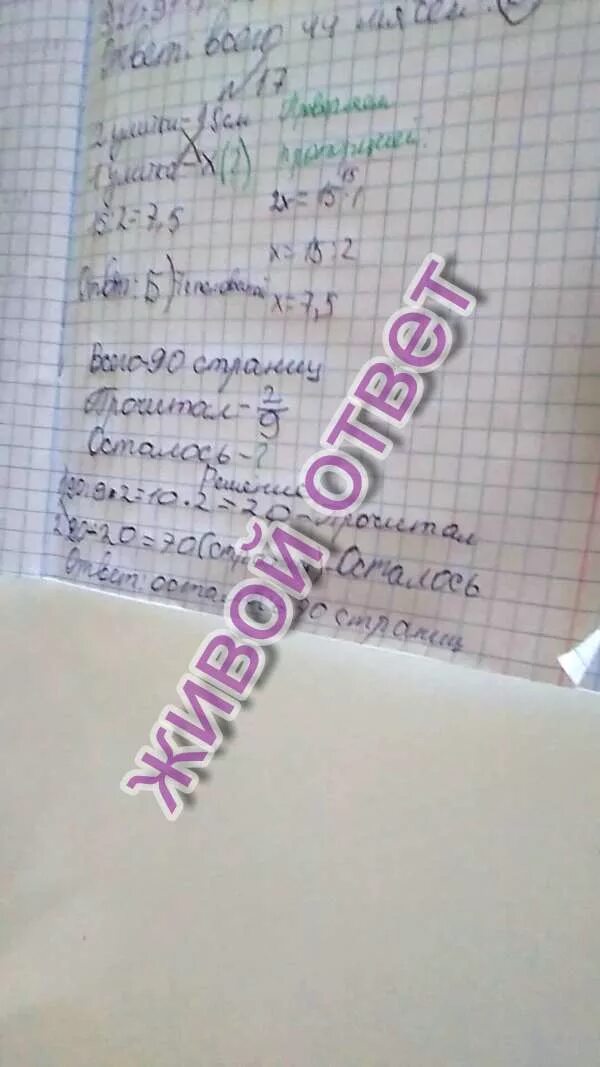 Ответ: всего 44
№ 17
2 улитки - 15 см
1 улитка - х (?) пропорцией.
15:2=7,5
2х = 15·1
х = 15:2
Ответ: Б)
х = 7,5
Всего-90 страниц
Прочитал - 2/9
Осталось - ?
Решение
1) 90:9·2=10·2=20 - Прочитал
2) 90-20=70(стр Осталось
Ответ: оста 90 страниц
ЖИВОЙ ОТВЕТ